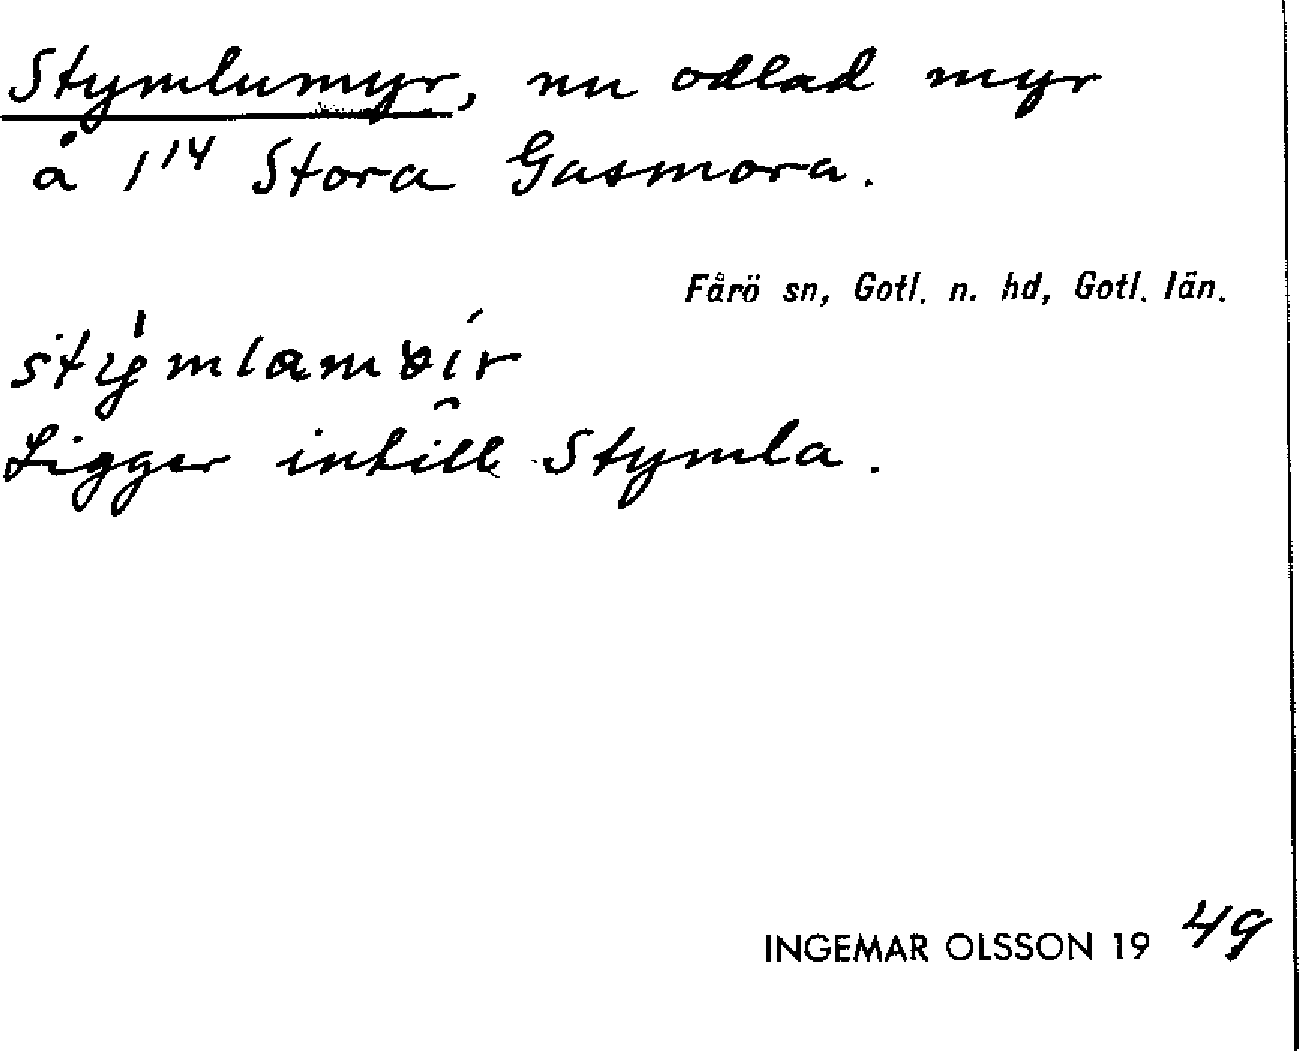 Stymlumyr, nu odlad myr
å 1¹⁴ Stora Gasmora.
Fårö sn, Gotl. n. hd, Gotl. län.
Ligger intill Stymla.
INGEMAR OLSSON 19 49